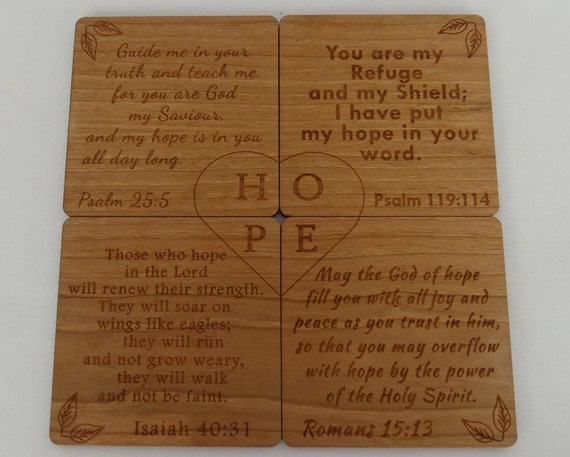 Guide me in your
truth and teach me,
for you are God
my Saviour,
and my hope is in you
all day long.
Psalm 25:5
You are my
Refuge
and my Shield;
I have put
my hope in your
word.
Psalm 119:114
H O
P E
Those who hope
in the Lord
will renew their strength.
They will soar on
wings like eagles;
they will run
and not grow weary,
they will walk
and not be faint.
Isaiah 40:31
May the God of hope
fill you with all joy and
peace as you trust in him,
so that you may overflow
with hope by the power
of the Holy Spirit.
Romans 15:13